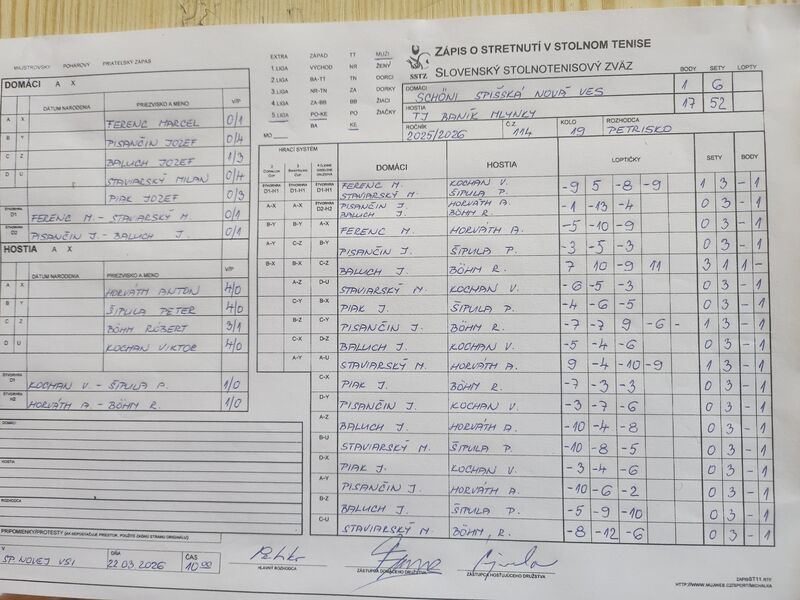 MAJSTROVSKÝ POHÁROVÝ PRIATEĽSKÝ ZÁPAS
EXTRA ZÁPAD TT MUŽI
1.LIGA VÝCHOD NR ŽENY
2.LIGA BA-TT TN DORCI
3.LIGA NR-TN ZA DORKY
4.LIGA ZA-BB BB ŽIACI
5.LIGA PO-KE PO ŽIAČKY
BA KE
MO
SSTZ
ZÁPIS O STRETNUTÍ V STOLNOM TENISE
SLOVENSKÝ STOLNOTENISOVÝ ZVÄZ
BODY SETY LOPTY
DOMÁCI SCHÖNI SPIŠSKÁ NOVÁ VES 1 6
HOSTIA TJ BANÍK MLYNKY 17 52
ROČNÍK 2025/2026 Č.Z. 114 KOLO 19 ROZHODCA PETRISKO
DOMÁCI A X
DÁTUM NARODENIA PRIEZVISKO A MENO V/P
A X FERENC MARCEL 0/1
B Y PISANČIN JOZEF 0/4
C Z BALUCH JOZEF 1/3
D U STAVIARSKÝ MILAN 0/4
PIAK JOZEF 0/3
ŠTVORHRA D1 FERENC M. - STAVIARSKÝ M 0/1
ŠTVORHRA D2 PISANČIN J. - BALUCH J. 0/1
HOSTIA A X
DÁTUM NARODENIA PRIEZVISKO A MENO V/P
A X HORVÁTH ANTON 4/0
B Y ŠIPULA PETER 4/0
C Z BÖHM RÓBERT 3/1
D U KOCHAN VIKTOR 4/0
ŠTVORHRA KOCHAN V. - ŠIPULA A. 1/0
ŠTVORHRA H2 HORVÁTH A. - BÖHM R. 1/0
DOMÁCI
HOSTIA
ROZHODCA
HRACÍ SYSTÉM
DOMÁCI HOSTIA LOPTIČKY SETY BODY
ŠTVORHRA D1-H1 ŠTVORHRA D1-H1 ŠTVORHRA D1-H1 FERENC M. KOCHAN V. ŠIPULA P. -9 5 -8 -9 1 3 - 1
A-X A-X ŠTVORHRA D2-H2 PISANČIN J. BALUCH J. HORVÁTH A. BÖHM R. -1 -13 -4 0 3 - 1
B-Y B-Y A-X FERENC M. HORVÁTH A. -5 -10 -9 0 3 - 1
A-Y C-Z B-Y PISANČIN J. ŠIPULA P. -3 -5 -3 0 3 - 1
B-X B-X C-Z BALUCH J. BÖHM R. 7 10 -9 11 3 1 1 -
A-Z D-U STAVIARSKÝ M. KOCHAN V. -6 -5 -3 0 3 - 1
C-Y B-X PIAK J. ŠIPULA P. -4 -6 -5 0 3 - 1
B-Z C-Y PISANČIN J. BÖHM R. -7 -7 9 -6 - 1 3 - 1
C-X D-Z BALUCH J. KOCHAN V. -5 -4 -6 0 3 - 1
A-Y A-U STAVIARSKÝ M. HORVÁTH A. 9 -4 -10 -9 1 3 - 1
C-X PIAK J. BÖHM R. -7 -3 -3 0 3 - 1
D-Y PISANČIN J. KOCHAN V. -3 -7 -6 0 3 - 1
A-Z BALUCH J. HORVÁTH A. -10 -4 -8 0 3 - 1
B-U STAVIARSKÝ M. ŠIPULA P. -10 -8 -5 0 3 - 1
D-X PIAK J. KOCHAN V. -3 -4 -6 0 3 - 1
A-Y PISANČIN J. HORVÁTH A. -10 -6 -2 0 3 - 1
B-Z BALUCH J. ŠIPULA P. -5 -9 -10 0 3 - 1
C-U STAVIARSKÝ M. BÖHM R. -8 -12 -6 0 3 - 1
PRIPOMIENKY/PROTESTY (AK NEPOSTAČUJE PRIESTOR, POUŽITE ZADNÚ STRANU ORIGINÁLU)
V SP. NOVEJ VSI DŇA 22.03.2026 ČAS 10:00
HLAVNÝ ROZHODCA ZÁSTUPCA DOMÁCEHO DRUŽSTVA ZÁSTUPCA HOSŤUJÚCEHO DRUŽSTVA
ZAPISST11.RTF
HTTP://WWW.MUJWEB.CZ/SPORT/MICHALKA